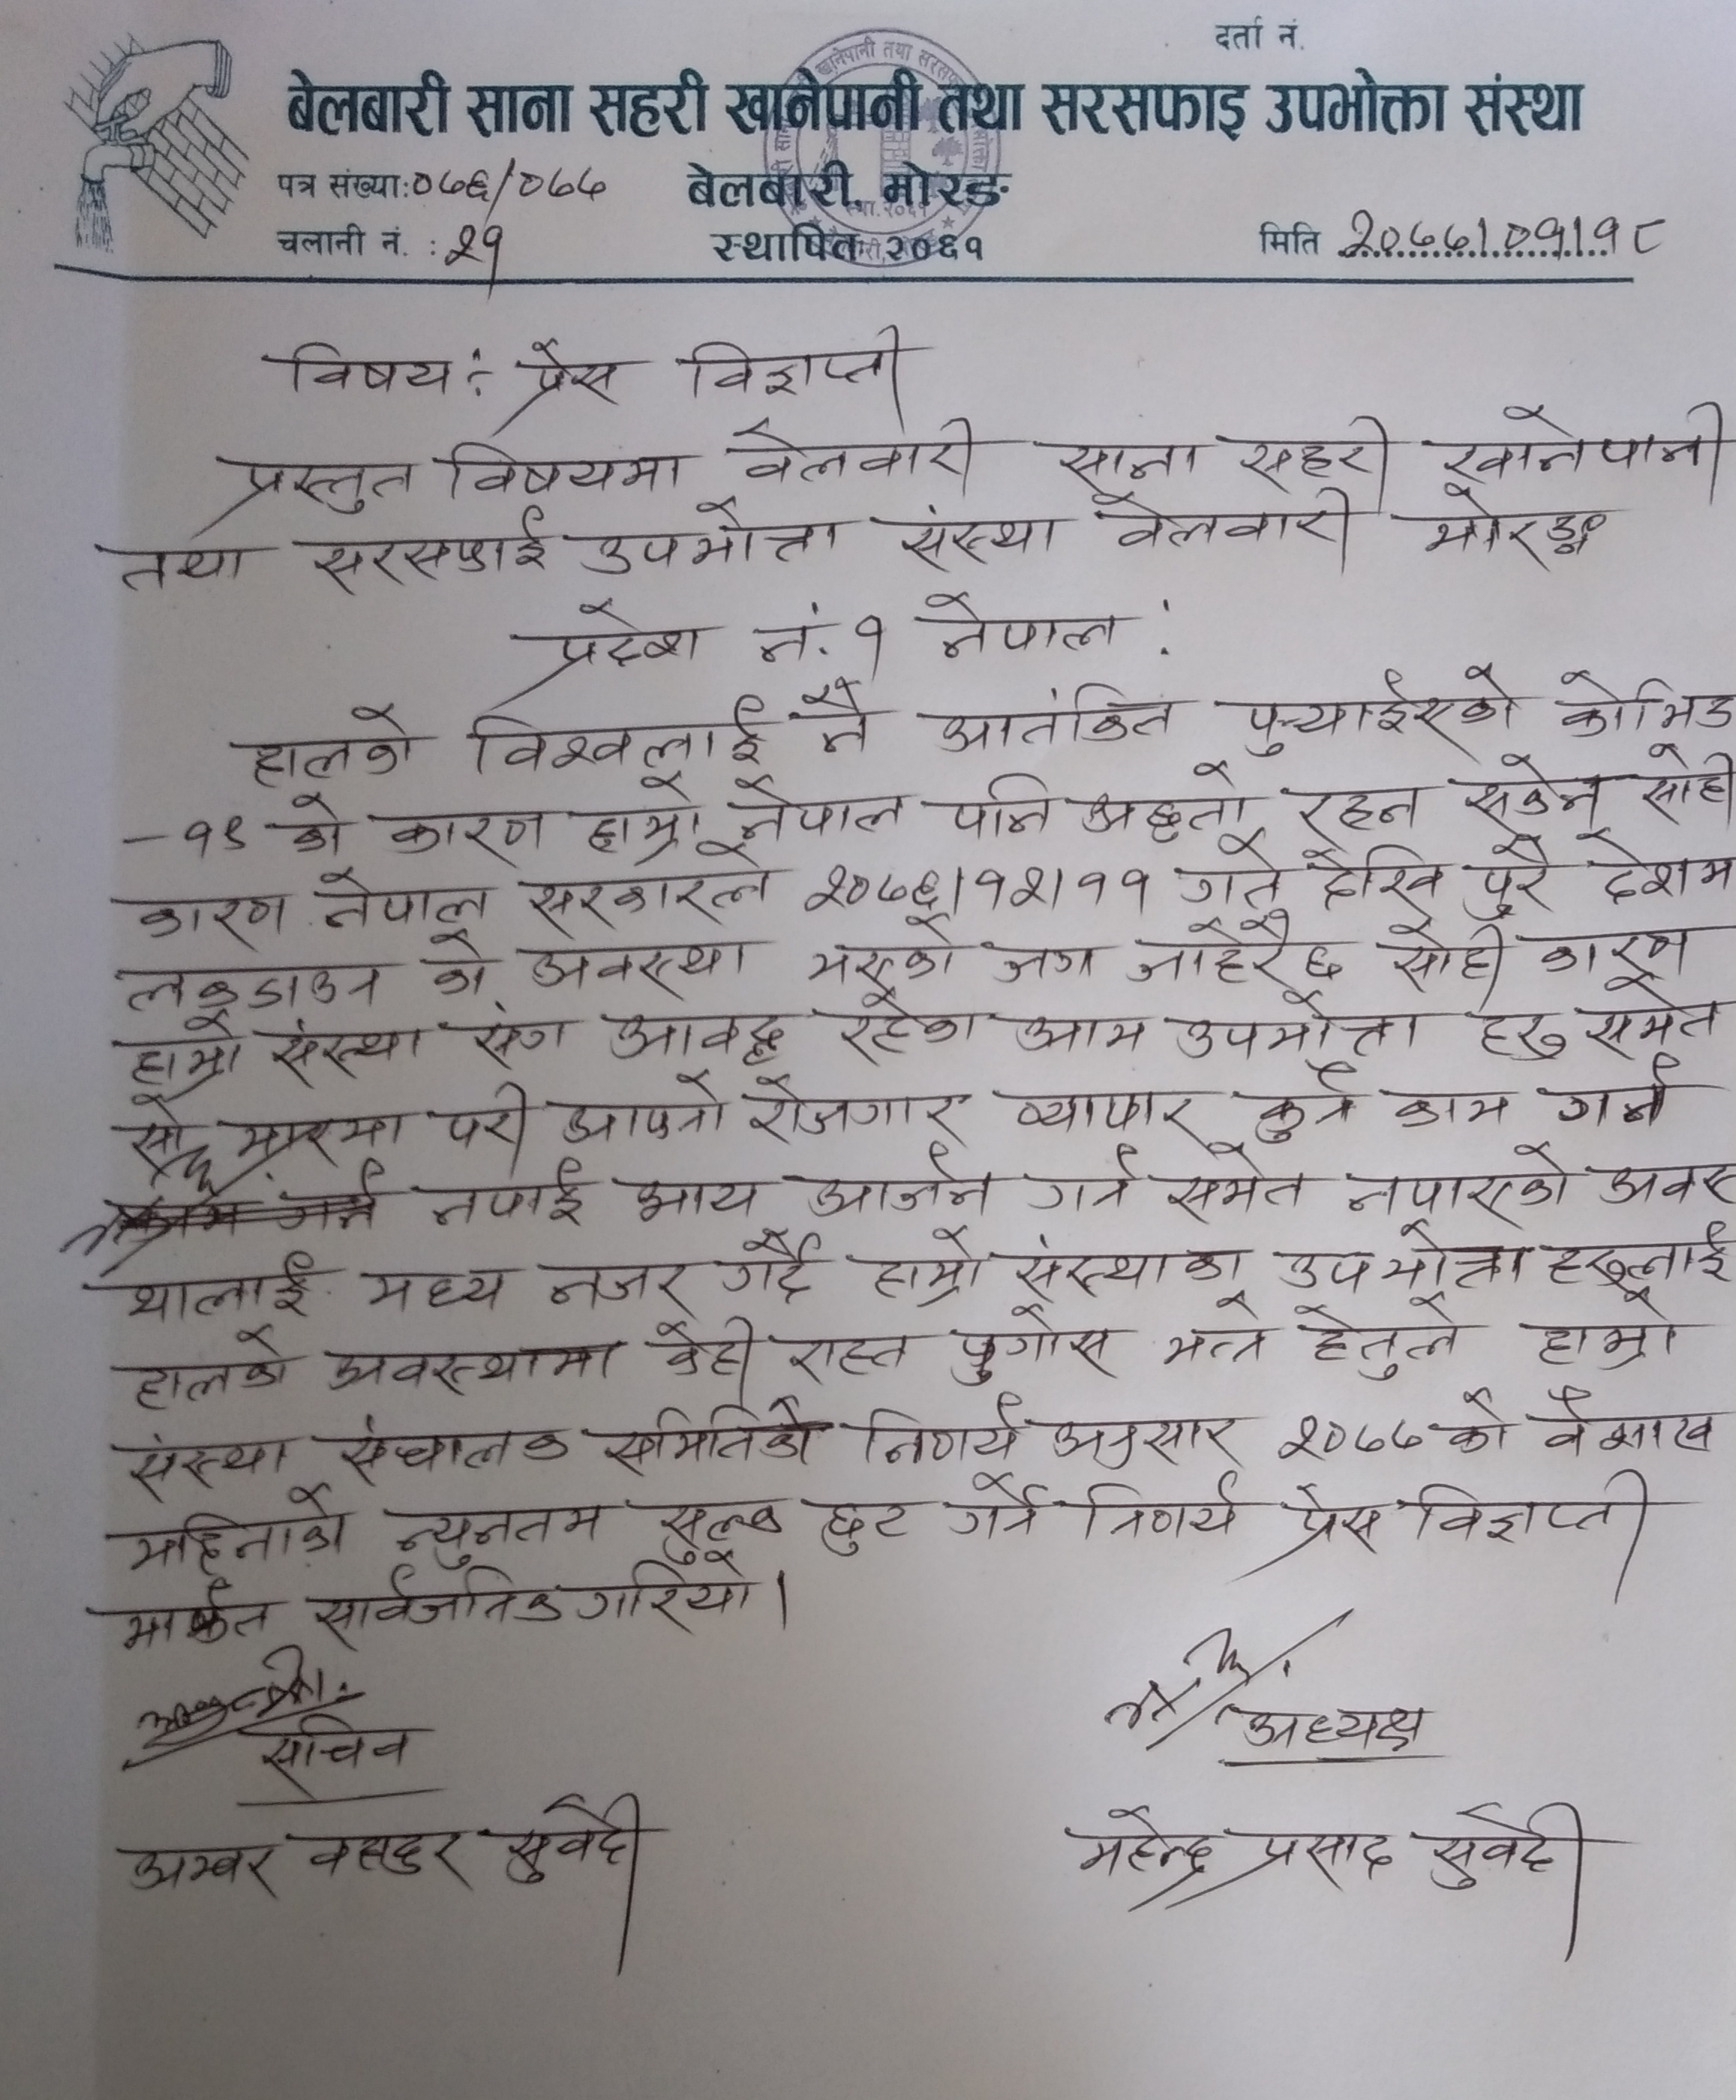 दर्ता नं.
बेलबारी साना सहरी खानेपानी तथा सरसफाइ उपभोक्ता संस्था
पत्र संख्या: ०७६/०७७
बेलबारी, मोरङ
चलानी नं. : २१
स्थापित २०६१
मिति २०७७।०१।१८
विषय: प्रेस विज्ञप्ती
प्रस्तुत विषयमा वेलवारी साना सहरी खानेपानी
तथा सरसफाई उपभोत्ता संस्था वेलवारी मोरङ्ग
प्रदेश नं. १ नेपाल :
हालको विश्वलाई नै आतंकित पुर्‍याईएको कोभिड
-१९ को कारण हाम्रो नेपाल पनि अछुतो रहन सकेन सोही
कारण नेपाल सरकारले २०७६।१२।११ गते देखि पुरै देशम
लकडाउन को अवस्था भएको जग जाहेरै छ सोही कारण
हाम्रो संस्था संग आवद्ध रहेका आम उपभोत्ता हरु समेत
मारमा परी आफ्नो रोजगार व्यापार कुनै काम गर्न
नपाई आय आर्जन गर्न समेत नपाएको अवस्
थालाई मध्य नजर गर्दै हाम्रो संस्थाका उपभोत्ता हरुलाई
हालको अवस्थामा केही राहत पुगोस भन्ने हेतुले हाम्रो
संस्था संचालक समितिको निर्णय अनुसार २०७७ को वैशाख
महिनाको न्युनतम सुल्क छुट गर्ने निर्णय प्रेस विज्ञप्ती
मार्फत सार्वजनिक गरियो।
सचिव
अध्यक्ष
अम्वर वहादुर सुवेदी
महेन्द्र प्रसाद सुवेदी